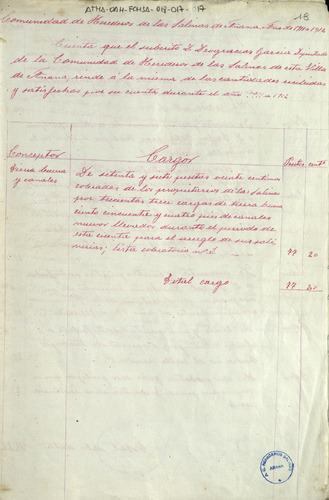 ATHA-DAH-FCHSA-018-017-17
18
Comunidad de Herederos de las Salinas de Añana Año de 1911 a 1912
Cuenta que el suscrito D. Deogracias Garcia Diputado
de la Comunidad de Herederos de las Salinas de esta Villa
de Añana, rinde á la misma de las cantidades recibidas
y satisfechas por su cuenta durante el año 1911 a 1912
Conceptos
Cargos
Pesetas cents
Tierra buena
y canales
De setenta y siete pesetas veinte centimos
cobradas de los propietarios de las Salinas
por trescientas trece cargas de tierra buena
ciento cincuenta y cuatro pies de canales
nuevos llevados durante el periodo de
esta cuenta para el arreglo de sus sali
nerias; lista cobratoria nº
77 20
Total cargo
77 20
AÑANA